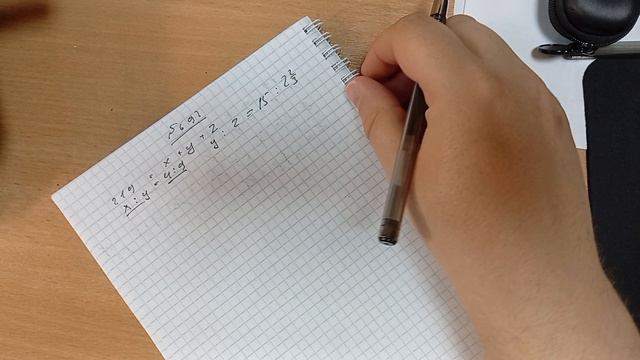 № 692
219 = x + y + z
x : y = 4 : 9 y : z = 15 : 2 2/3